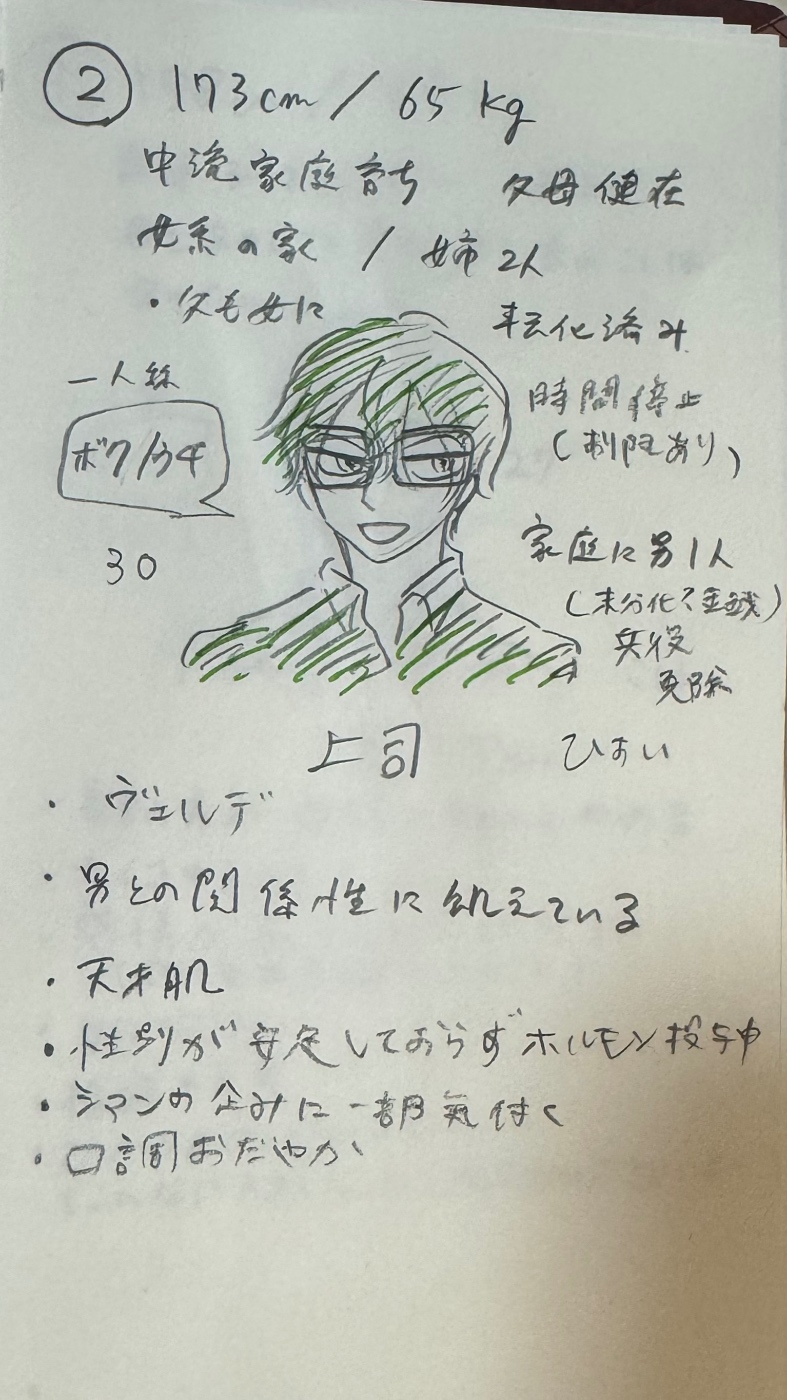 ② 173cm / 65kg
中流家庭育ち 父母健在
女系の家 / 姉2人
・父も女に
転化済み
一人称
ボク/ウチ
時間停止
(制限あり)
30
家庭に男1人
(未分化?金銭)
兵役
免除
上司
・ヴェルデ
・男との関係性に飢えている
・天才肌
・性別が安定しておらずホルモン投与中
・シマンの企みに一部気付く
・口調おだやか